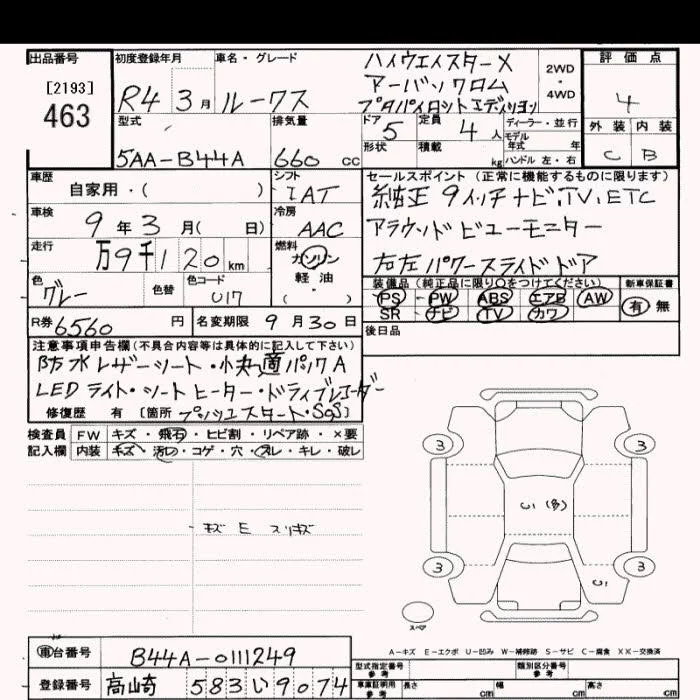 出品番号
[2193]
463
初度登録年月
R4 3月
車名・グレード
ルークス
ハイウェイスターX
アーバンクロム
プロパイロットエディション
2WD
・
4WD
評価点
4
外装 内装
C B
型式
5AA-B44A
排気量
660 cc
ドア
5
定員
4人
ディーラー・並行
モデル
年式 年
形状
積載 kg
ハンドル 左・右
車歴
自家用・( )
シフト
IAT
車検
9年3月( 日)
冷房
AAC
走行
万9千120km
燃料
ガソリン
軽油
( )
色
グレー
色替
色コード
U17
R券 6560 円
名変期限 9月30日
セールスポイント (正常に機能するものに限ります)
純正9インチナビ.TV.ETC
アラウンドビューモニター
右左パワースライドドア
装備品(純正品に限り○をつけてください)
新車保証書
PS PW ABS エアB AW
SR ナビ TV カワ
有 無
後日品
注意事項申告欄(不具合内容等は具体的に記入して下さい)
防水レザーシート・小快適パックA
LEDライト・シートヒーター・ドライブレコーダー
修復歴 有 [箇所 プッシュスタート・SOS]
検査員 FW キズ・飛石・ヒビ割・リペア跡・×要
記入欄 内装 キズ・汚れ・コゲ・穴・スレ・キレ・破レ
キズ E スリキズ
3
3
C1 (多)
3
3
C1
スペア
A-キズ E-エクボ U-凹み W-補修跡 S-サビ C-腐食 XX-交換済
車台番号
B44A-0111249
登録番号
高崎 583 い 9074
型式指定番号
参考
類別区分番号
参考
車庫証明用
参考
長さ cm
幅 cm
高さ cm